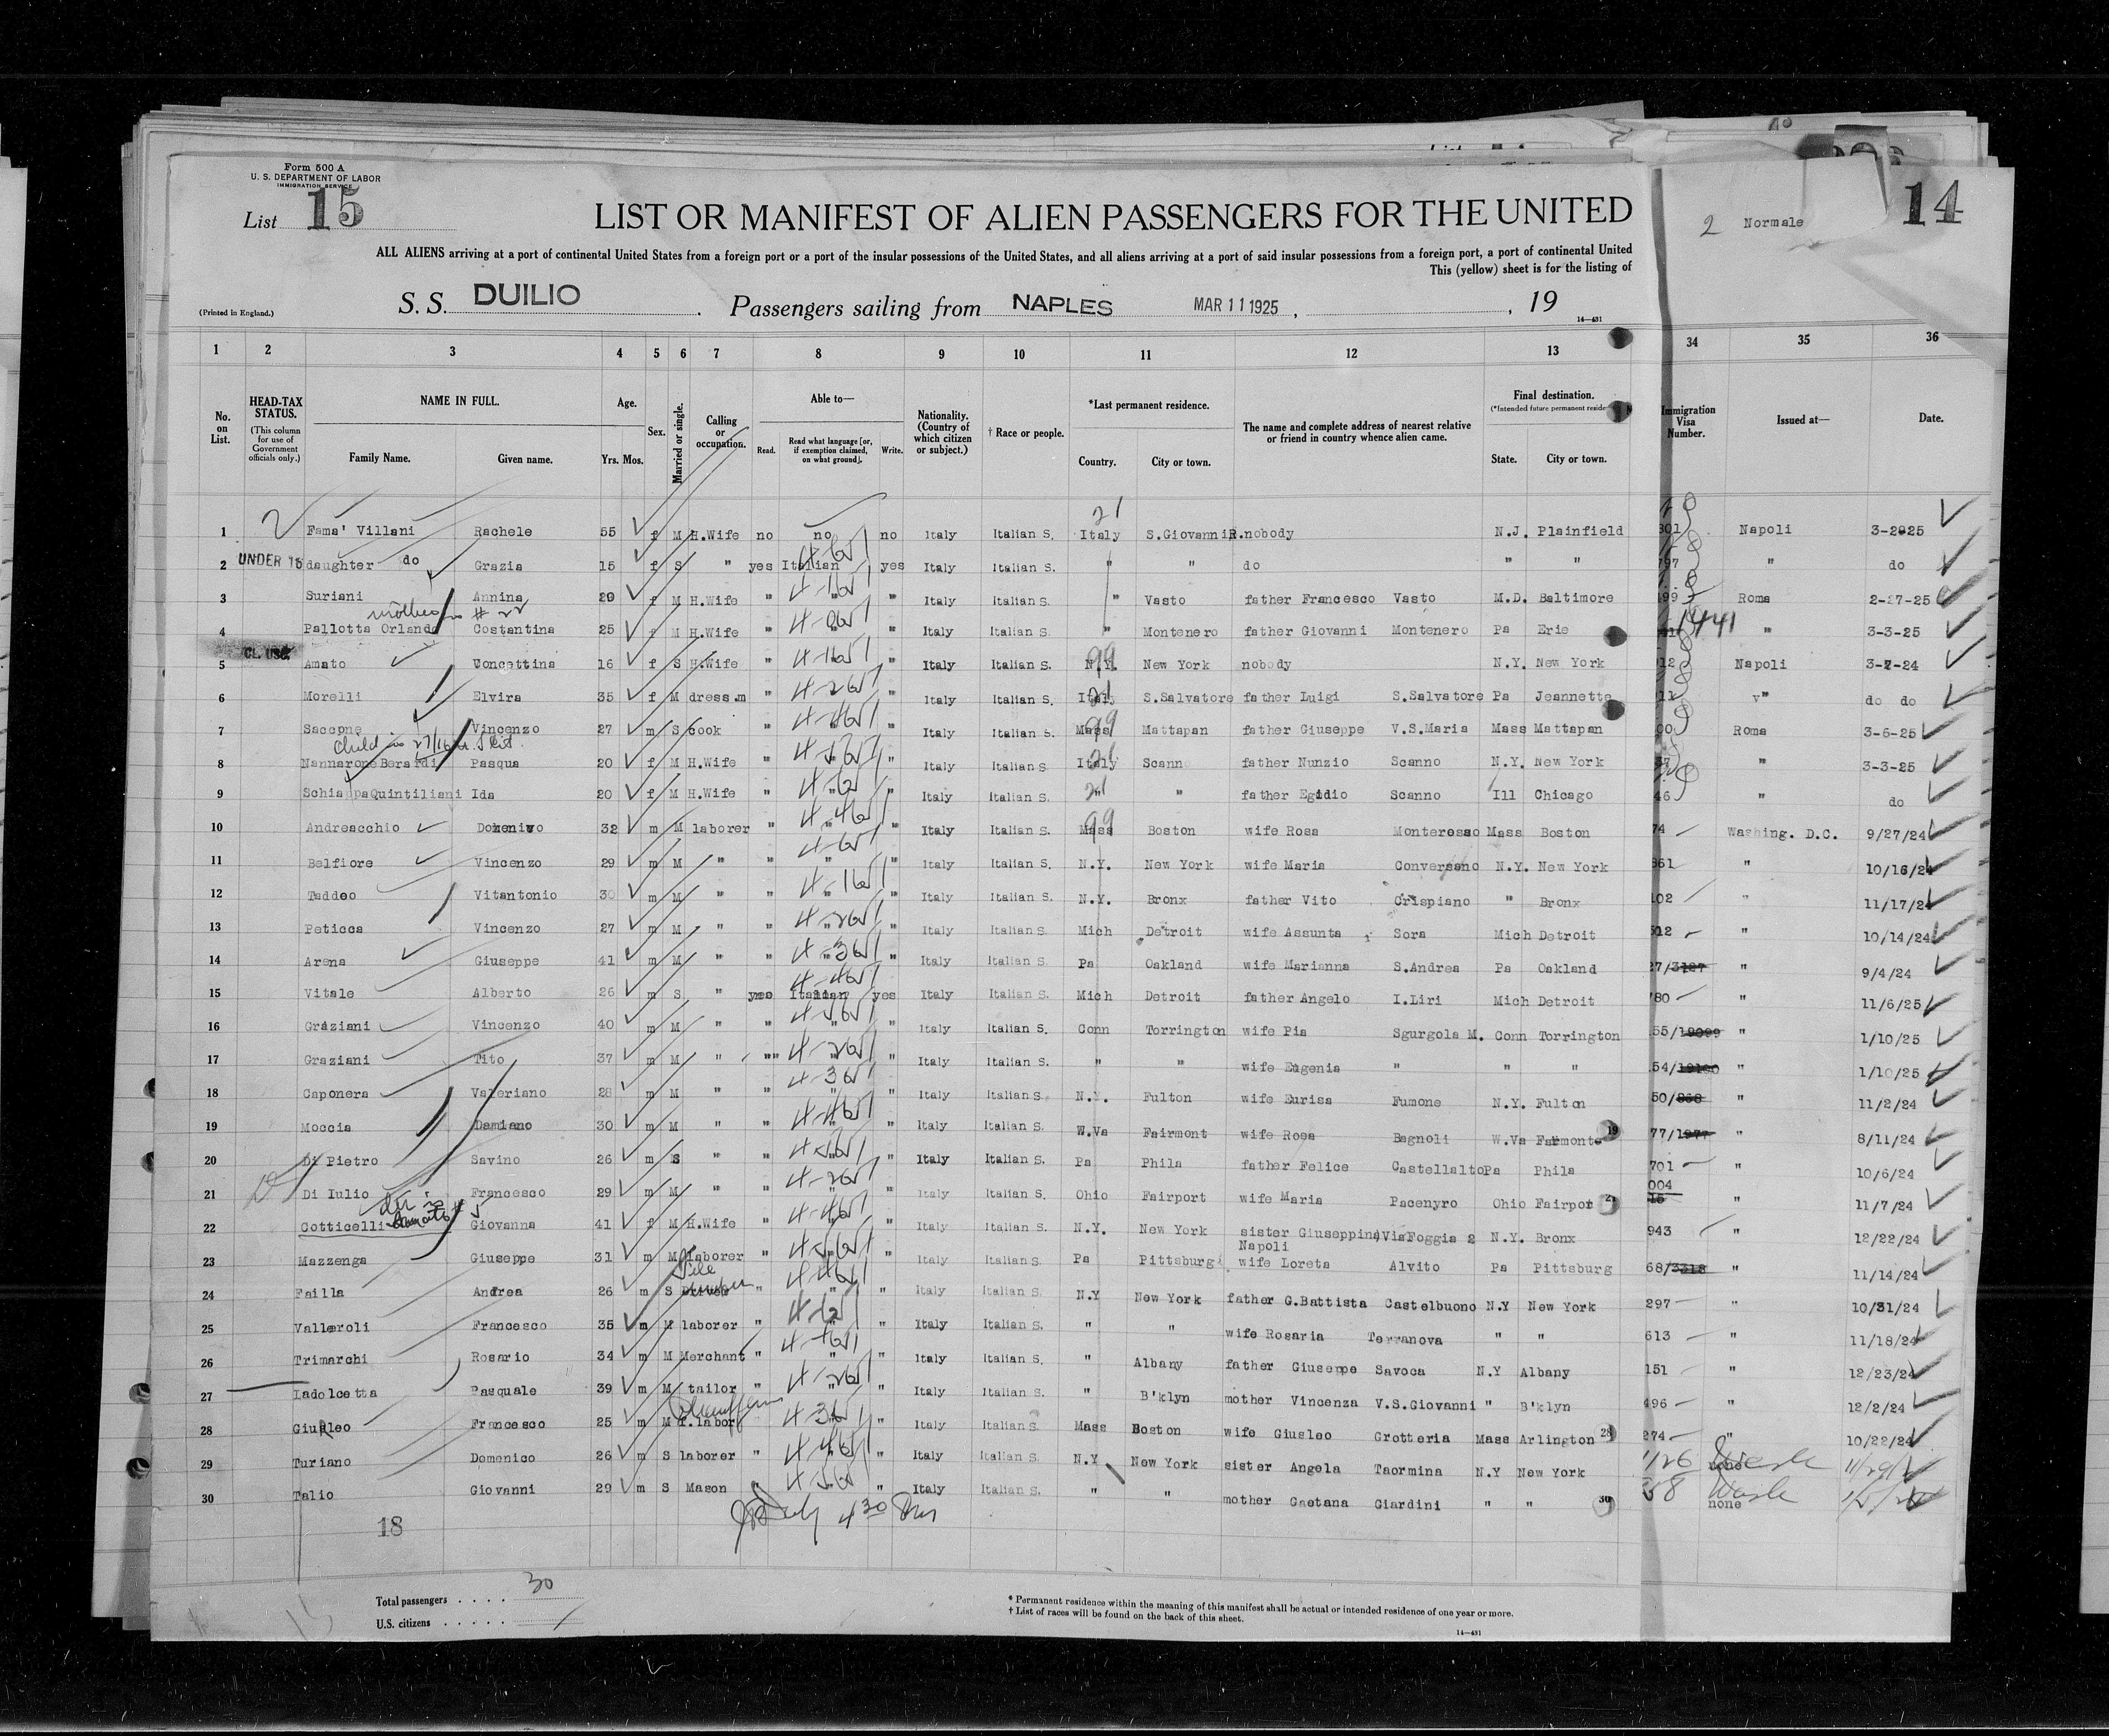 Form 500 A
U. S. DEPARTMENT OF LABOR
IMMIGRATION SERVICE
List 15
LIST OR MANIFEST OF ALIEN PASSENGERS FOR THE UNITED
2 Normale 14
ALL ALIENS arriving at a port of continental United States from a foreign port or a port of the insular possessions of the United States, and all aliens arriving at a port of said insular possessions from a foreign port, a port of continental United
This (yellow) sheet is for the listing of
(Printed in England.)
S. S. DUILIO . Passengers sailing from NAPLES MAR 11 1925 , , 19
14—431
1 2 3 4 5 6 7 8 9 10 11 12 13 34 35 36
No. on List.
HEAD-TAX STATUS.
(This column for use of Government officials only.)
NAME IN FULL.
Family Name. Given name.
Age.
Yrs. Mos.
Sex.
Married or single.
Calling or occupation.
Able to—
Read. Read what language [or, if exemption claimed, on what ground]. Write.
Nationality. (Country of which citizen or subject.)
† Race or people.
*Last permanent residence.
Country. City or town.
The name and complete address of nearest relative or friend in country whence alien came.
Final destination.
(*Intended future permanent reside
State. City or town.
Immigration Visa Number.
Issued at—
Date.
21
1 2 Fama' Villani Rachele 55 f M H.Wife no no no Italy Italian S. Italy S.GiovanniR. nobody N.J. Plainfield 301 Napoli
2 UNDER 16 daughter do Grazia 15 f S " yes Italian yes Italy Italian S. " " do " " 797 " do
3 Suriani Annina 29 f M H.Wife " " " Italy Italian S. " Vasto father Francesco Vasto M.D. Baltimore 199 Roma 2-27-25
mother # 22
4 Pallotta Orlando Costantina 25 f M H.Wife " " " Italy Italian S. " Montenero father Giovanni Montenero Pa Erie 1441 " 3-3-25
5 Amato Concettina 16 f S H.Wife " " " Italy Italian S. N.Y. New York nobody N.Y. New York 12 Napoli
6 Morelli Elvira 35 f M dress.m " " " Italy Italian S. Italy S.Salvatore father Luigi S.Salvatore Pa Jeannette 11 " do do
7 Saccone Vincenzo 27 m S cook " " " Italy Italian S. Mass Mattapan father Giuseppe V.S.Maria Mass Mattapan 00 Roma 3-6-25
8 Nannarone Berardi Pasqua 20 f M H.Wife " " " Italy Italian S. Italy Scanno father Nunzio Scanno N.Y. New York " 3-3-25
9 SchiappaQuintiliani Ida 20 f M H.Wife " " " Italy Italian S. " " father Egidio Scanno Ill Chicago 46 " do
10 Andreacchio Domenico 32 m M laborer " " " Italy Italian S. Mass Boston wife Rosa Monterosso Mass Boston 74 Washing. D.C. 9/27/24
11 Belfiore Vincenzo 29 m M " " " " Italy Italian S. N.Y. New York wife Maria Conversano N.Y. New York 861 " 10/16/24
12 Taddeo Vitantonio 30 m M " " " " Italy Italian S. N.Y. Bronx father Vito Crispiano " Bronx 102 " 11/17/24
13 Peticca Vincenzo 27 m M " " " " Italy Italian S. Mich Detroit wife Assunta Sora Mich Detroit 512 " 10/14/24
14 Arena Giuseppe 41 m M " " " " Italy Italian S. Pa Oakland wife Marianna S.Andrea Pa Oakland 27/3187 " 9/4/24
15 Vitale Alberto 26 m S " yes Italian yes Italy Italian S. Mich Detroit father Angelo I.Liri Mich Detroit 780 " 11/6/25
16 Graziani Vincenzo 40 m M " " " " Italy Italian S. Conn Torrington wife Pia Sgurgola M. Conn Torrington 55/19099 " 1/10/25
17 Graziani Tito 37 m M " " " " Italy Italian S. " " wife Eugenia " " " 54/19100 " 1/10/25
18 Caponera Valeriano 28 m M " " " " Italy Italian S. N.Y. Fulton wife Eurisa Fumone N.Y. Fulton 50/868 " 11/2/24
19 Moccia Damiano 30 m M " " " " Italy Italian S. W.Va Fairmont wife Rosa Bagnoli W.Va Fairmont 19 77/1977 " 8/11/24
20 Di Pietro Savino 26 m S " " " " Italy Italian S. Pa Phila father Felice Castellalto Pa Phila 701 " 10/6/24
21 Di Iulio Francesco 29 m M " " " " Italy Italian S. Ohio Fairport wife Maria Pacenyro Ohio Fairpor 21 004 15 " 11/7/24
22 Cotticelli Giovanna 41 f M H.Wife " " " Italy Italian S. N.Y. New York sister Giuseppina ViaFoggia 2 Napoli N.Y. Bronx 943 " 12/22/24
23 Mazzenga Giuseppe 31 m M laborer " " " Italy Italian S. Pa Pittsburg wife Loreta Alvito Pa Pittsburg 68/3318 " 11/14/24
24 Failla Andrea 26 m S " " " Italy Italian S. N.Y New York father G.Battista Castelbuono N.Y New York 297 " 10/31/24
25 Valleroli Francesco 35 m M laborer " " " Italy Italian S. " " wife Rosaria Terranova " " 613 " 11/18/24
26 Trimarchi Rosario 34 m M Merchant " " " Italy Italian S. " Albany father Giuseppe Savoca N.Y Albany 151 " 12/23/24
27 Ladolcetta Pasquale 39 m M tailor " " " Italy Italian S. " B'klyn mother Vincenza V.S.Giovanni " B'klyn 496 " 12/2/24
Chauffeur
28 Giusleo Francesco 25 m M f.labor " " Italy Italian S. Mass Boston wife Giusleo Grotteria Mass Arlington 28 274 " 10/22/24
29 Turiano Domenico 26 m S laborer " " " Italy Italian S. N.Y New York sister Angela Taormina N.Y New York 1126 none
30 Talio Giovanni 29 m S Mason " " Italy Italian S. " " mother Gaetana Giardini " " 30 none
18
Total passengers . . . . 30
U.S. citizens . . . . .
* Permanent residence within the meaning of this manifest shall be actual or intended residence of one year or more.
† List of races will be found on the back of this sheet.
14—431